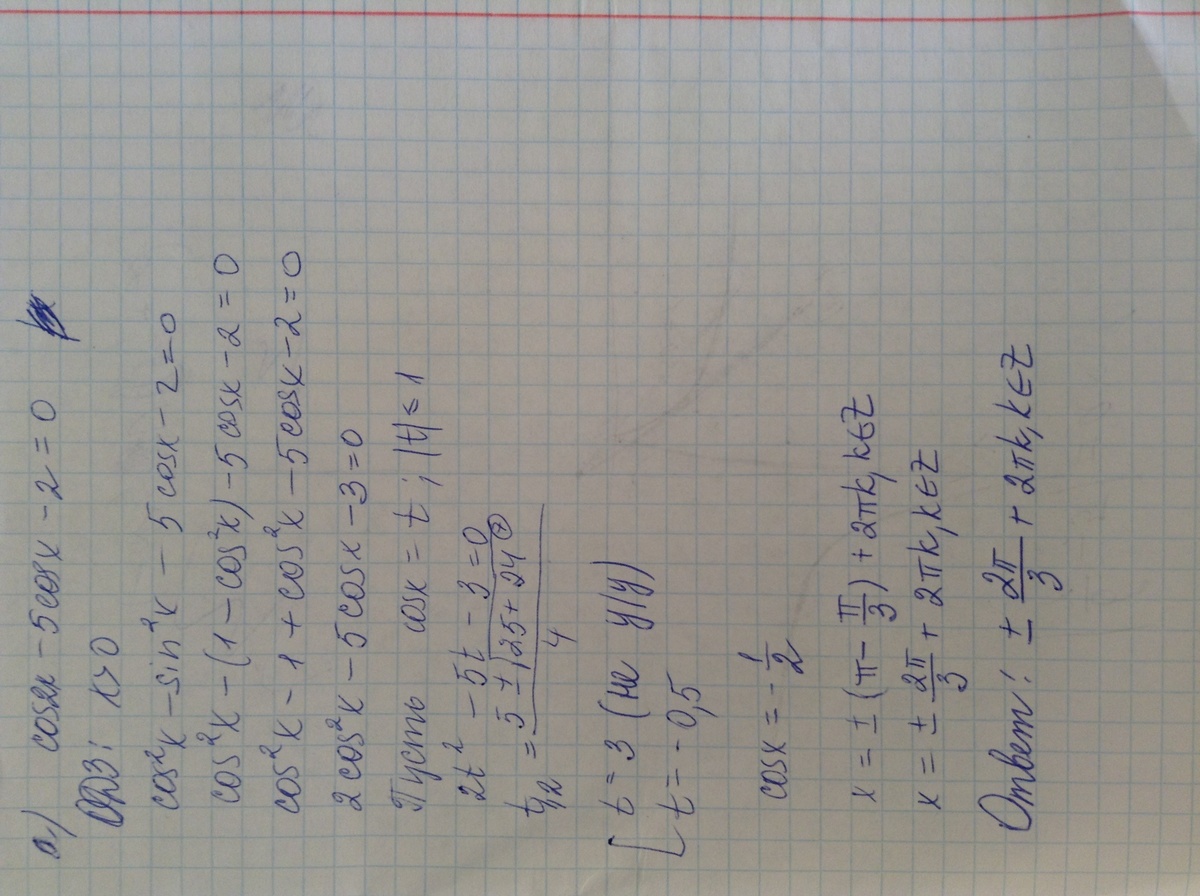 а) cos2x - 5cosx - 2 = 0
ОДЗ: x>0
cos²x - sin²x - 5cosx - 2 = 0
cos²x - (1 - cos²x) - 5cosx - 2 = 0
cos²x - 1 + cos²x - 5cosx - 2 = 0
2cos²x - 5cosx - 3 = 0
Пусть cosx = t; |t| ≤ 1
2t² - 5t - 3 = 0
t₁,₂ = (5 ± √(25 + 24)) / 4 (7)
[ t = 3 (не у/у)
[ t = -0,5
cosx = -1/2
x = ± (π - π/3) + 2πk, k∈Z
x = ± 2π/3 + 2πk, k∈Z
Ответ: ± 2π/3 + 2πk, k∈Z